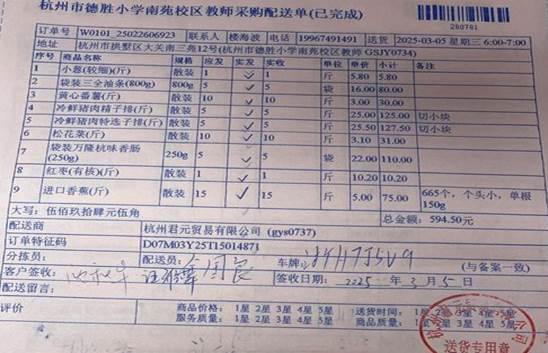 杭州市德胜小学南苑校区教师采购配送单(已完成)
280781
订单号 W0101_25022606923 联系人 楼海波 电话 19967491491 送货 2025-03-05 星期三 6:00-7:00
地址 杭州市拱墅区大关南三苑12号(杭州市德胜小学南苑校区教师 GSJY0734)
序号 商品名称 规格 应发 实发 实收 单位 单价 总价 备注
1 小葱(较细)(斤) 散装 1 斤 5.80 5.80
2 袋装三全油条(800g) 800g 5 袋 16.00 80.00
3 黄心番薯(斤) 散装 10 斤 3.00 30.00
4 冷鲜猪肉精子排(斤) 散装 5 斤 25.00 125.00 切小块
5 冷鲜猪肉特选子排(斤) 散装 5 斤 25.50 127.50 切小块
6 松花菜(斤) 散装 10 10 斤 3.10 31.00
7 袋装万隆杭味香肠(250g) 250g 5 袋 22.00 110.00
8 红枣(有核)(斤) 散装 1 斤 10.20 10.20
9 进口香蕉(斤) 散装 15 15 斤 5.00 75.00 665个，个头小，单根150g
大写：伍佰玖拾肆元伍角 总金额：594.50元
配送商 杭州君元贸易有限公司 (gys0737)
订单特征码 D07M03Y25T15014871
分拣员： 配送员： 车牌： (与备案一致)
客户签收： 签收日期： 2025 年 3 月 5 日
配送留言：
评价 商品价格： 1星 2星 3星 4星 5星 送货时间： 1星 2星 3星 4星 5星
服务质量： 1星 2星 3星 4星 5星 商品质量： 1星 2星 3星 4星 5星
送货专用章